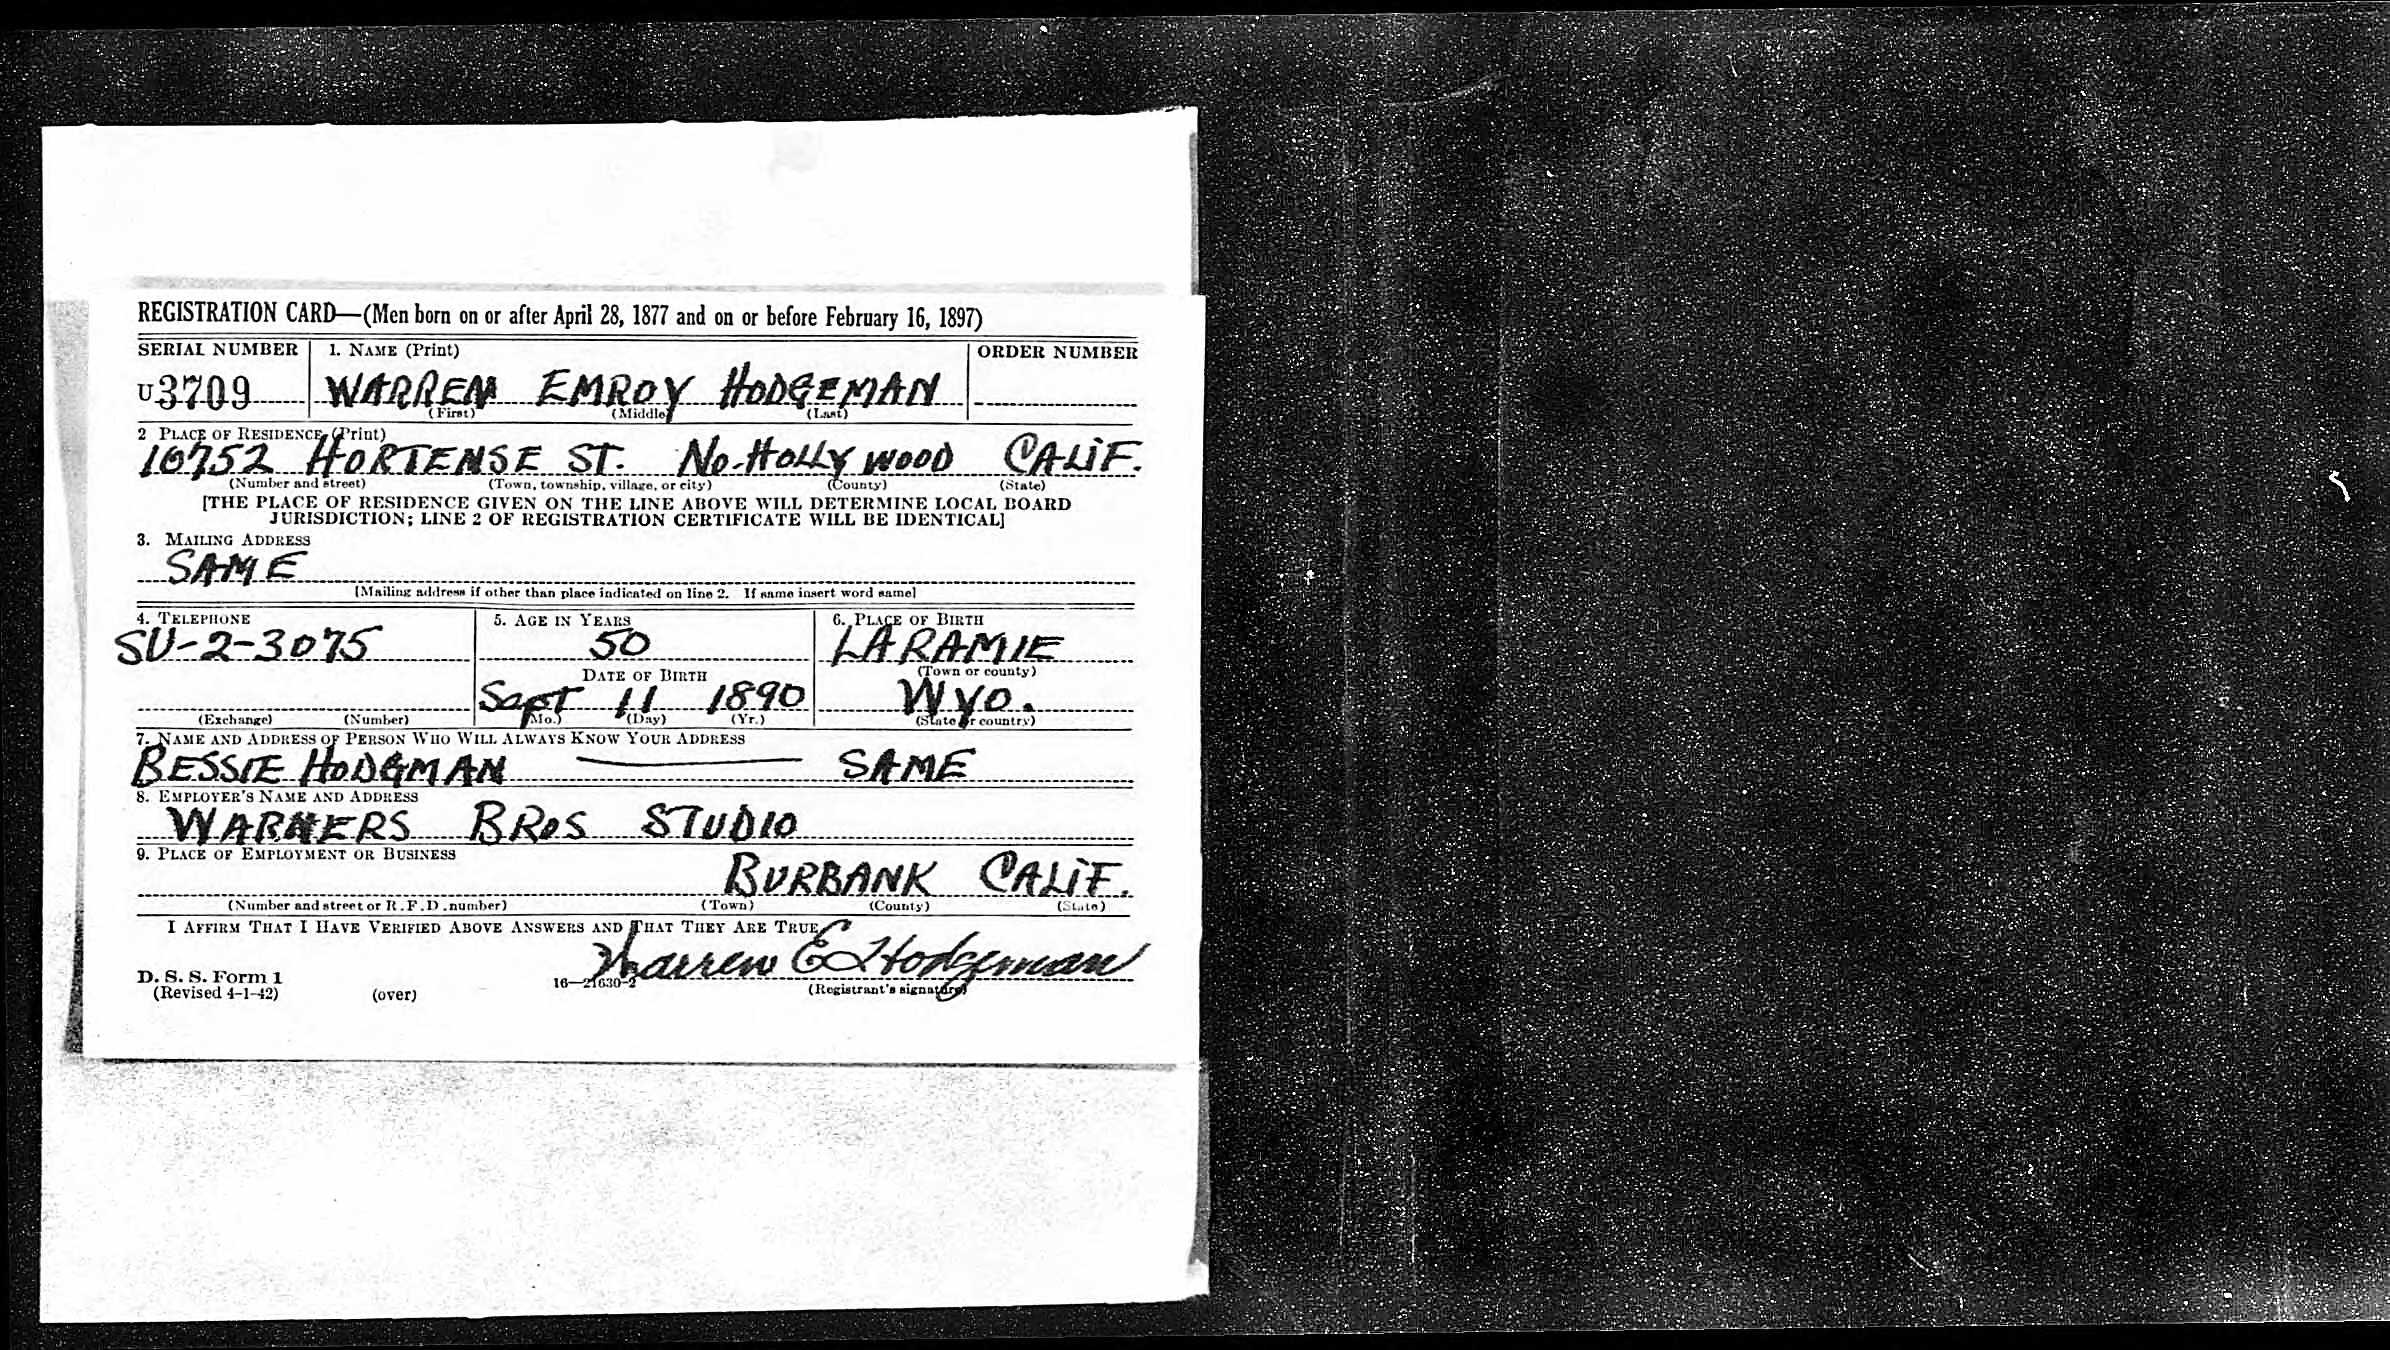 REGISTRATION CARD—(Men born on or after April 28, 1877 and on or before February 16, 1897)
SERIAL NUMBER 1. NAME (Print) ORDER NUMBER
U3709 WARREN EMROY HODGEMAN
(First) (Middle) (Last)
2 PLACE OF RESIDENCE (Print)
10752 HORTENSE ST. NO. HOLLYWOOD CALIF.
(Number and street) (Town, township, village, or city) (County) (State)
[THE PLACE OF RESIDENCE GIVEN ON THE LINE ABOVE WILL DETERMINE LOCAL BOARD
JURISDICTION; LINE 2 OF REGISTRATION CERTIFICATE WILL BE IDENTICAL]
3. MAILING ADDRESS
SAME
[Mailing address if other than place indicated on line 2. If same insert word same]
4. TELEPHONE 5. AGE IN YEARS 6. PLACE OF BIRTH
SU-2-3075 50 LARAMIE
DATE OF BIRTH (Town or county)
Sept 11 1890 WYO.
(Exchange) (Number) (Mo.) (Day) (Yr.) (State or country)
7. NAME AND ADDRESS OF PERSON WHO WILL ALWAYS KNOW YOUR ADDRESS
BESSIE HODGMAN — SAME
8. EMPLOYER'S NAME AND ADDRESS
WARNERS BROS STUDIO
9. PLACE OF EMPLOYMENT OR BUSINESS
BURBANK CALIF.
(Number and street or R.F.D. number) (Town) (County) (State)
I AFFIRM THAT I HAVE VERIFIED ABOVE ANSWERS AND THAT THEY ARE TRUE
Warren E Hodgeman
D. S. S. Form 1 16—21630-2 (Registrant's signature)
(Revised 4-1-42) (over)